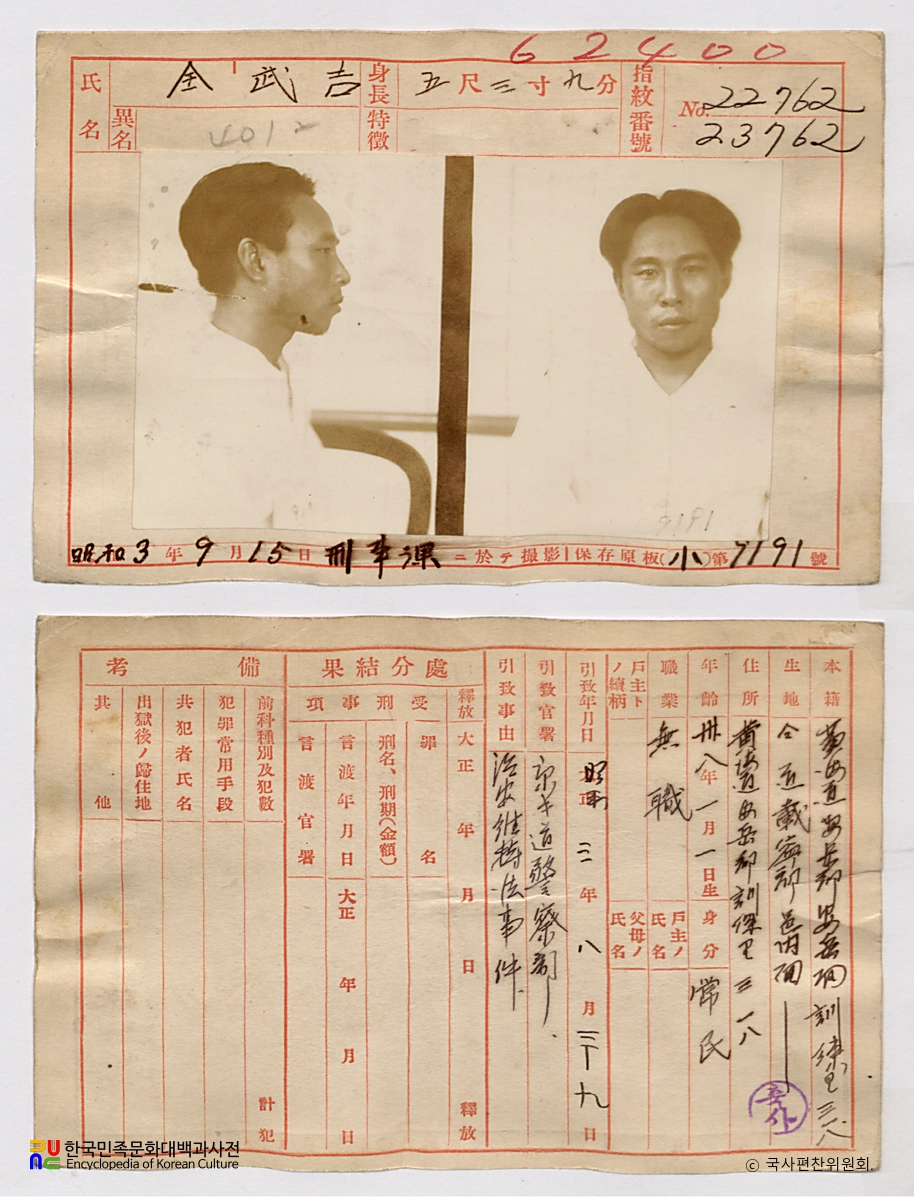 62400
氏名
金武吉
身長
五尺三寸九分
指紋番號
No. 22762
23762
異名
4012
特徴
7191
昭和3年9月15日刑事課ニ於テ撮影
保存原板(小)第7191號
本籍
黃海道安岳郡安岳面訓練里三一八
生地
仝道載寧郡邑內面
住所
黃海道安岳郡訓練里三一八
年齡
卅八年一月一日生
身分
常民
職業
無職
戶主ノ氏名
戶主トノ續柄
父母ノ氏名
引致年月日
昭和三年八月二十九日
引致官署
京畿道警察部
引致事由
治安維持法事件
處分結果
釋放
大正年月日
釋放
受刑事項
罪名
刑名、刑期(金額)
言渡年月日
大正年月日
言渡官署
備考
前科種別及犯數
計犯
犯罪常用手段
共犯者氏名
出獄後ノ歸住地
其他
한국민족문화대백과사전
Encyclopedia of Korean Culture
© 국사편찬위원회